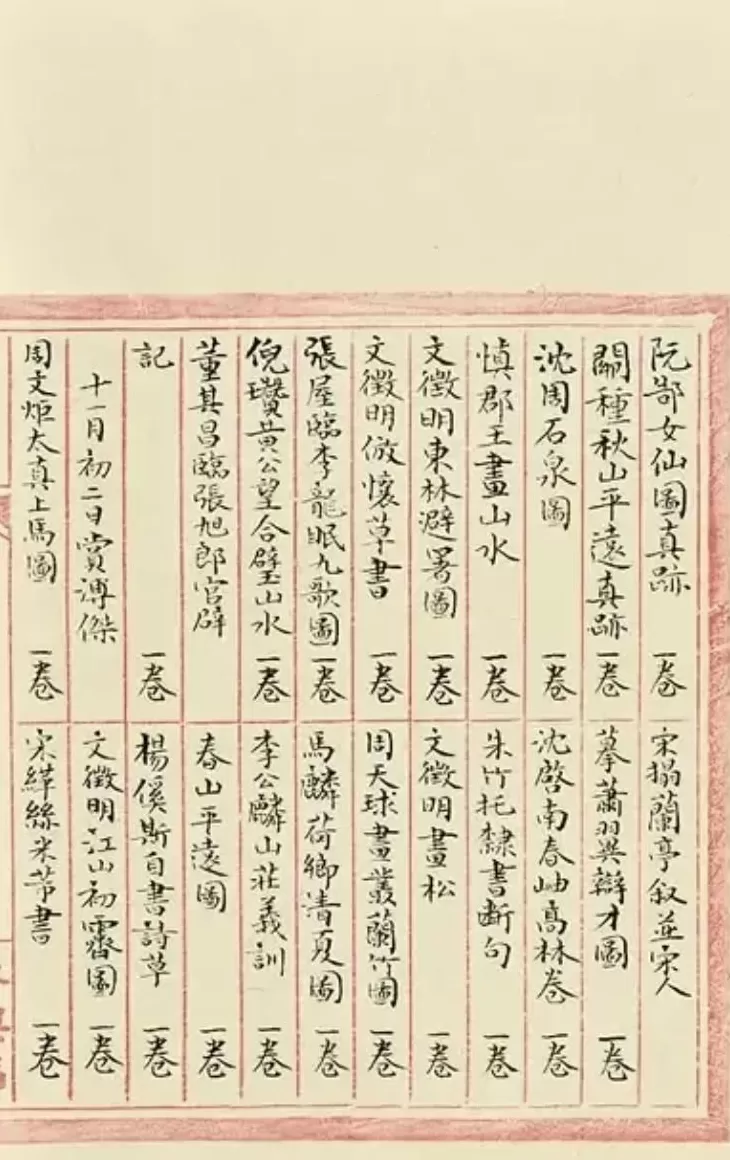 阮郜女仙圖真跡 一卷
關種秋山平遠真跡 一卷
沈周石泉圖 一卷
慎郡王畫山水 一卷
文徵明東林避暑圖 一卷
文徵明倣懷草書 一卷
張屋臨李龍眠九歌圖 一卷
倪瓚黄公望合璧山水 一卷
董其昌臨張旭郎官辟
記 一卷
十一月初二日賞溥傑
周文炬太真上馬圖 一卷
宋搨蘭亭叙並宋人
摹蕭翼辯才圖 一卷
沈啓南春岫高林卷 一卷
朱竹托隸書断句 一卷
文徵明畫松 一卷
周天球畫叢蘭竹圖 一卷
馬麟荷鄉清夏圖 一卷
李公麟山莊義訓 一卷
春山平遠圖 一卷
楊傒斯自書詩草 一卷
文徵明江山初霽圖 一卷
宋緙絲米芾書 一卷